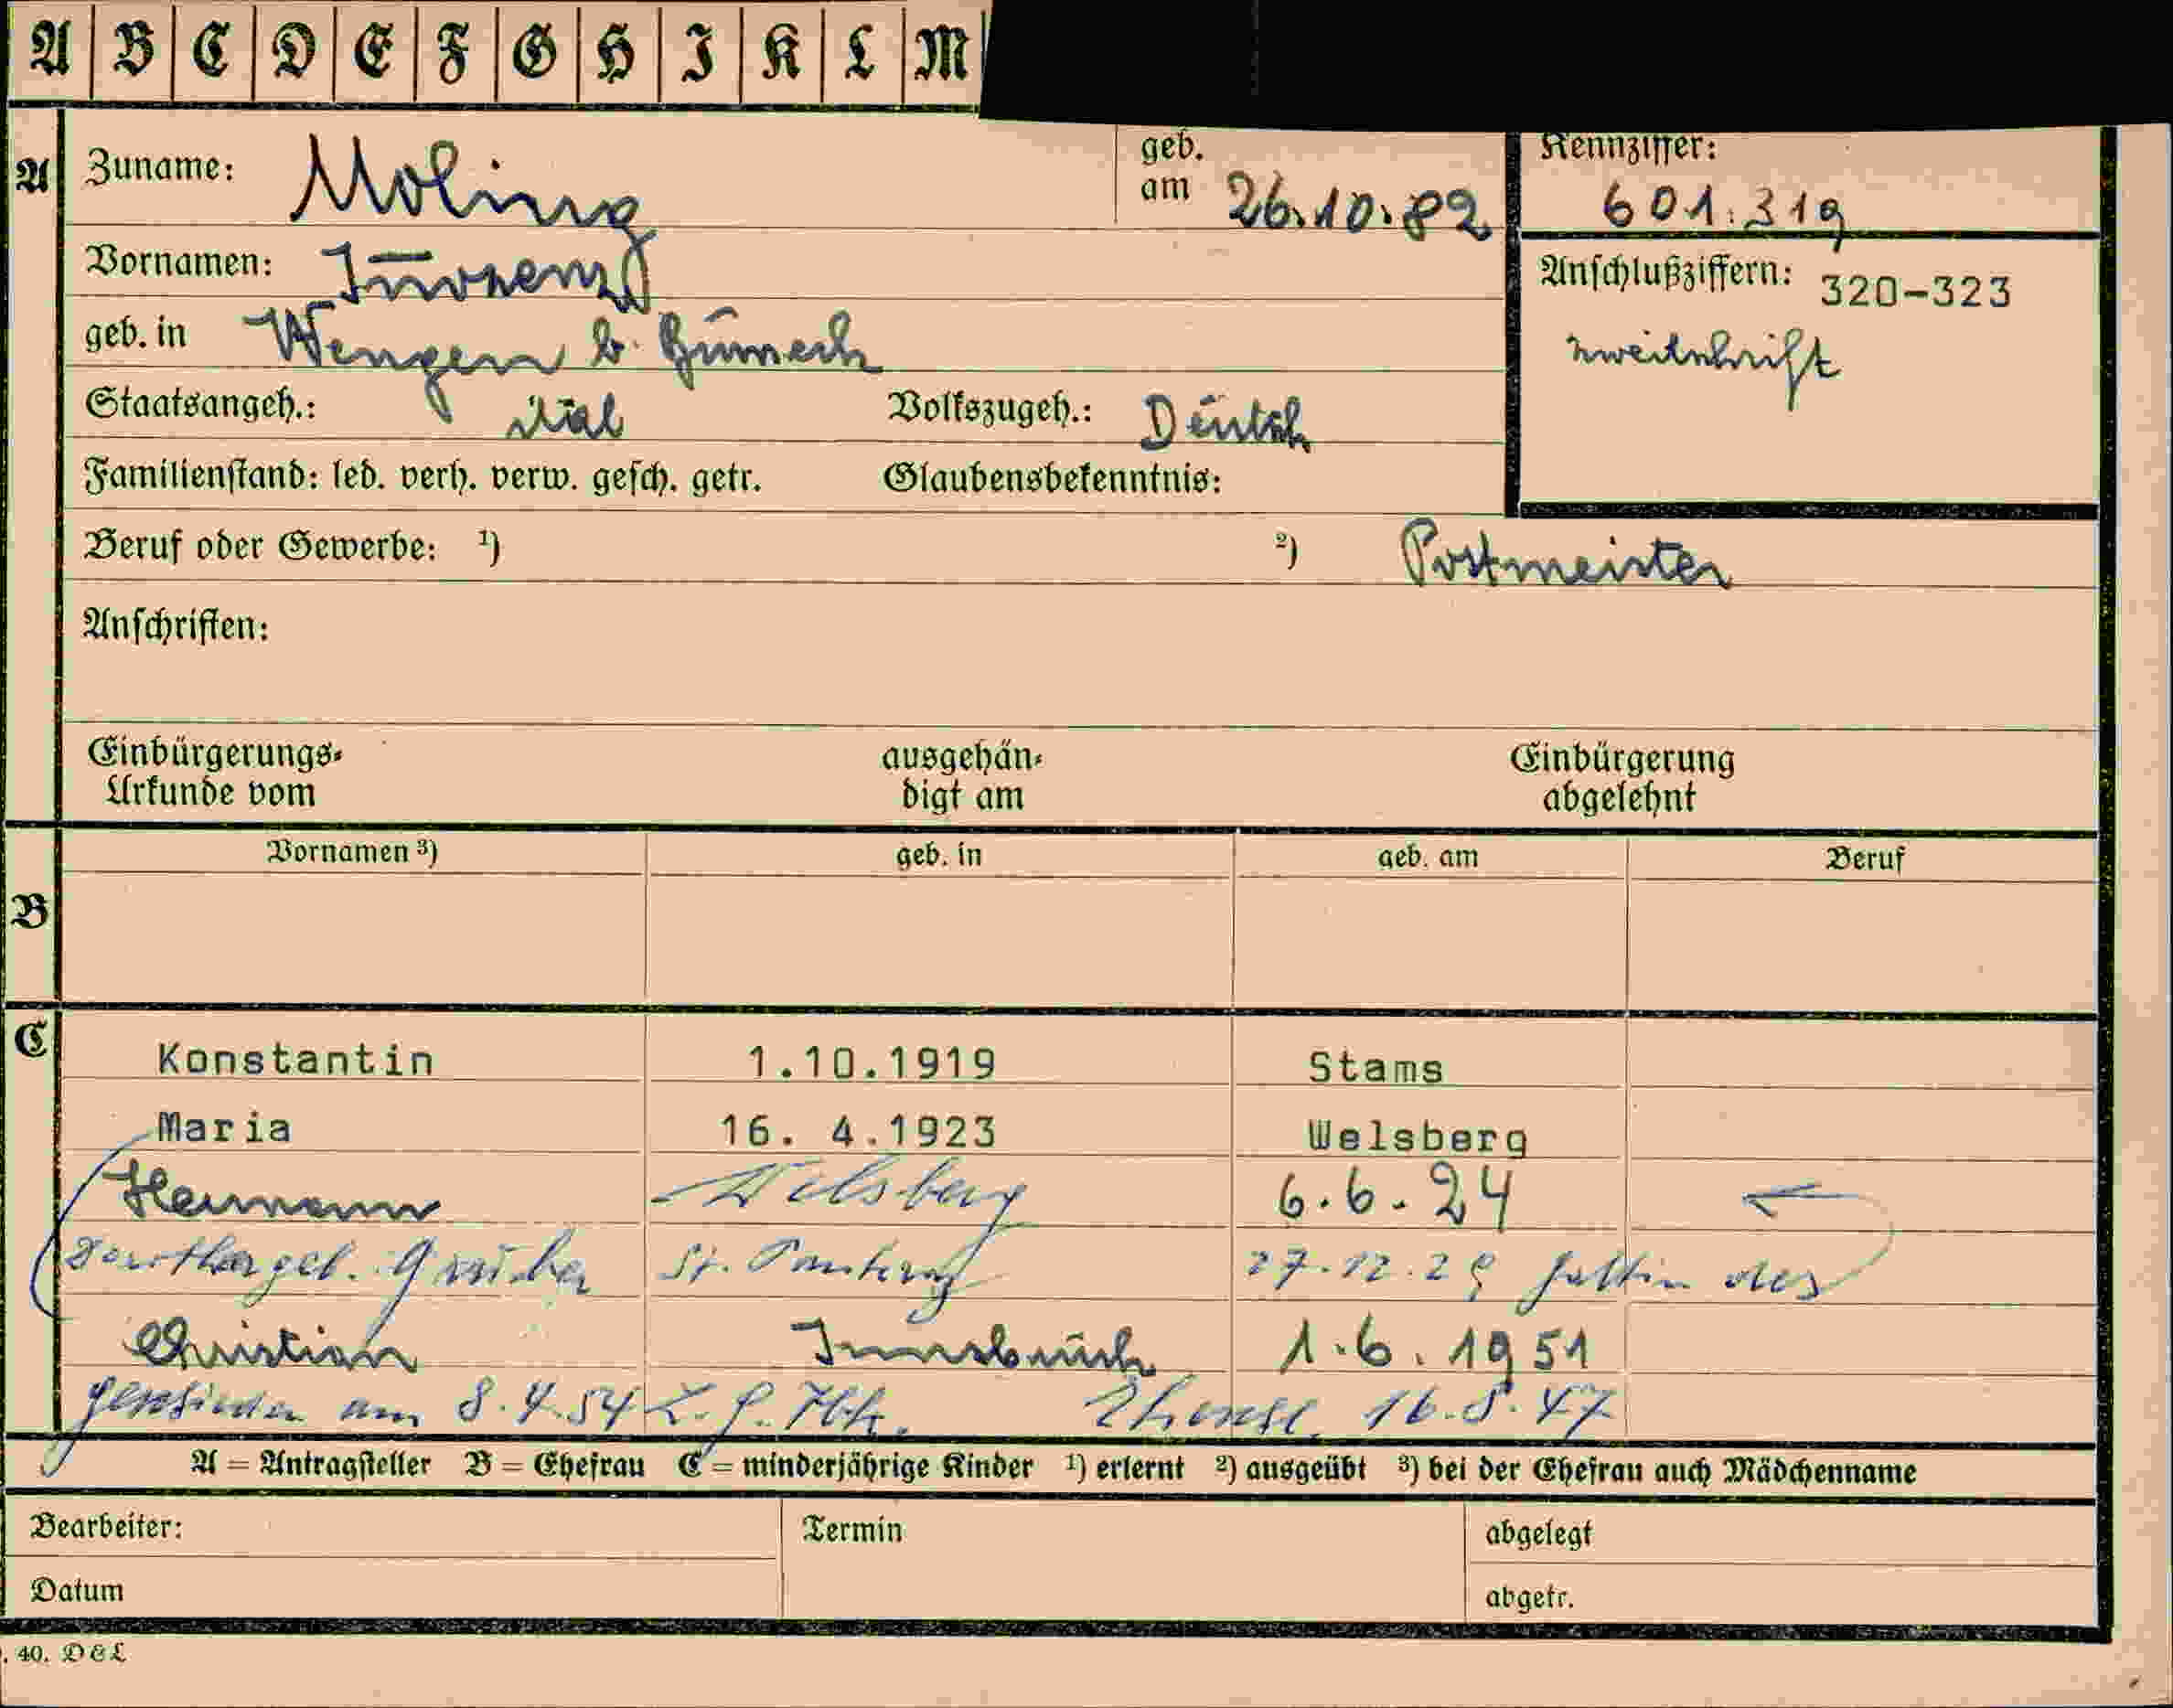 A B C D E F G H I K L M
A
Zuname: Moling
geb. am 26.10.82
Kennziffer: 601.319
Vornamen:
Anschlußziffern: 320-323
geb. in Wengen b.
Zweitschrift
Staatsangeh.: ital
Volkszugeh.: Deutsch
Familienstand: led. verh. verw. gesch. getr.
Glaubensbekenntnis:
Beruf oder Gewerbe: ¹)
²) Postmeister
Anschriften:
Einbürgerungs-
Urkunde vom
ausgehän-
digt am
Einbürgerung
abgelehnt
B
Vornamen ³) geb. in geb. am Beruf
C
Konstantin 1.10.1919 Stams
Maria 16. 4.1923 Welsberg
Hermann Welsberg 6.6.24
geb. Gruber St. Pankraz 27.12.29 Gattin des
Christian Innsbruck 1.6.1951
geschieden am 8.4.54 L.G. Ibk. 16.8.47
A = Antragsteller B = Ehefrau C = minderjährige Kinder ¹) erlernt ²) ausgeübt ³) bei der Ehefrau auch Mädchenname
Bearbeiter:
Termin
abgelegt
Datum
abgetr.
. 40. D & L